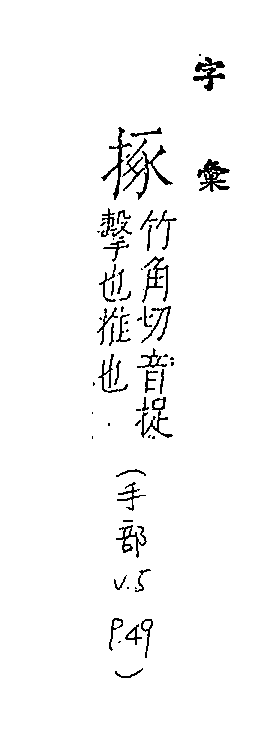 字彙
㧻
竹角切音捉
擊也推也
(手部
v.5
P.49)